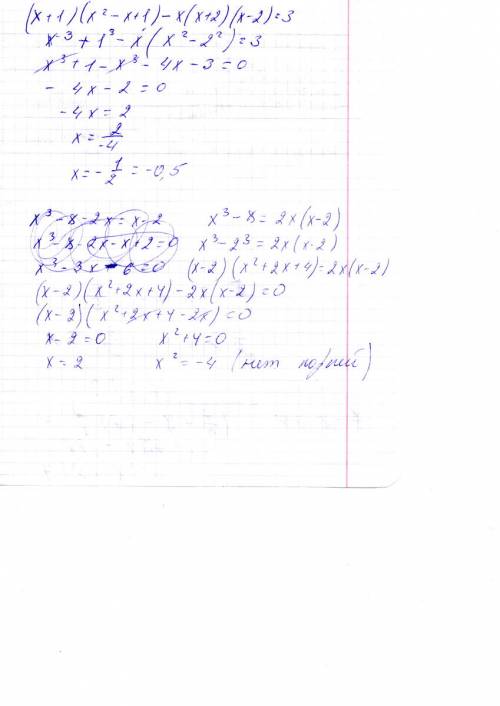 (x+1)(x²-x+1)-x(x+2)(x-2)=3
x³+1³-x(x²-2²)=3
x³+1-x³-4x-3=0
- 4x-2=0
-4x=2
x=2/-4
x=-1/2=-0,5
x³-8-2x=x-2 x³-8=2x(x-2)
x³-8-2x-x+2=0 x³-2³=2x(x-2)
x³-3x-6=0 (x-2)(x²+2x+4)=2x(x-2)
(x-2)(x²+2x+4)-2x(x-2)=0
(x-2)(x²+2x+4-2x)=0
x-2=0 x²+4=0
x=2 x²=-4 (нет корней)